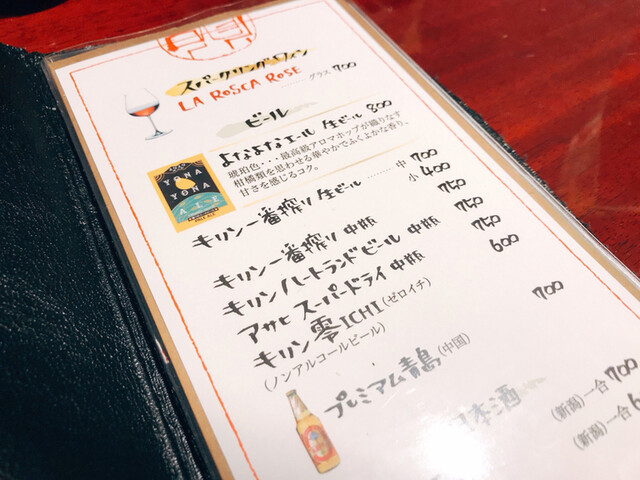 スパークリングワイン
LA ROSCA ROSE グラス 700
ビール
よなよなエール 生ビール 800
琥珀色・・・最高級アロマホップが織りなす
柑橘類を思わせる華やかでふくよかな香り、
甘さを感じるコク。
YONA
YONA
ALE
キリン一番搾り 生ビール ……… 中 700
小 400
キリン一番搾り 中瓶 750
キリン ハートランドビール 中瓶 750
アサヒ スーパードライ 中瓶 750
キリン 零ICHI (ゼロイチ) 600
(ノンアルコールビール)
プレミアム青島 (中国) 700
日本酒
(新潟) 一合 700
(新潟) 一合